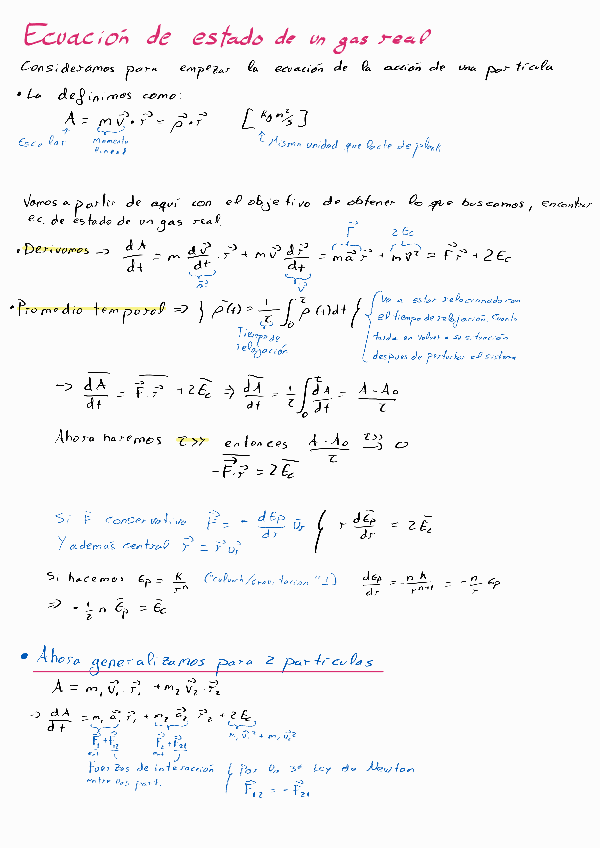 Ecuación de estado de un gas real
Consideramos para empezar la ecuación de la acción de una partícula
• La definimos como:
A = m v⃗ · r⃗ = p⃗ · r⃗ [Kg m²/s]
Escalar Momento lineal Misma unidad que la cte de plank
Vamos a partir de aquí con el objetivo de obtener lo que buscamos, encontrar
ec. de estado de un gas real.
• Derivamos → dA/dt = m dv⃗/dt · r⃗ + m v⃗ dr⃗/dt = m a⃗ r⃗ + m v⃗² = F⃗ r⃗ + 2Ec
a⃗ v⃗ F⃗ 2Ec
• Promedio temporal ⇒ { ρ̄(t) = 1/τ ∫₀^τ ρ(t)dt } { Va a estar relacionado con
el tiempo de relajación. Cuanto
tarda en volver a su situación
despues de perturbar el sistema
Tiempo de
relajación
→ dA/dt = F⃗ · r⃗ + 2Ec ⇒ dA/dt = 1/τ ∫₀^τ dA/dt = A - A₀/τ
Ahora haremos τ>> entonces A - A₀/τ → 0
τ>>
-F⃗ · r⃗ = 2Ec
Si F⃗ conservativa F⃗ = - dEp/dr u⃗r { r dEp/dr = 2Ec
Y además central r⃗ = r u⃗r
Si hacemos Ep = K/rⁿ (
dEp/dr = -n K/rⁿ⁺¹ = -n/r Ep
⇒ - 1/2 n Ēp = Ēc
• Ahora generalizamos para 2 partículas
A = m₁ v⃗₁ · r⃗₁ + m₂ v⃗₂ · r⃗₂
→ dA/dt = m₁ a⃗₁ r⃗₁ + m₂ a⃗₂ r⃗₂ + 2Ec
F⃗₁ + F⃗₁₂ F⃗₂ + F⃗₂₁ m₁v₁² + m₂v₂²
Fuerzas de interacción { Por la 3ª Ley de Newton
entre las part. F⃗₁₂ = -F⃗₂₁